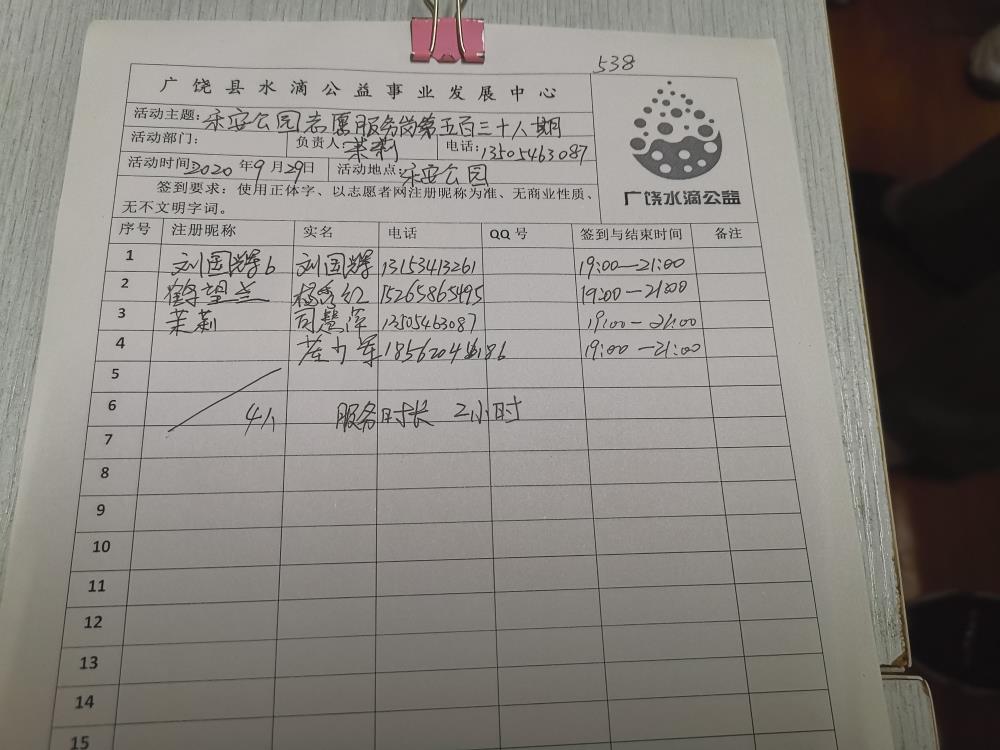 538
广饶县水滴公益事业发展中心
活动主题: 乐安公园志愿服务岗第五百三十八期
活动部门: 负责人: 茉莉 电话: 13505463087
活动时间 2020 年 9 月 29 日 活动地点: 乐安公园
签到要求: 使用正体字、以志愿者网注册昵称为准、无商业性质、
无不文明字词。
广饶水滴公益
序号 注册昵称 实名 电话 QQ 号 签到与结束时间 备注
1 刘国辉6 刘国辉 13153413261 19:00—21:00
2 鹤望兰 杨秀红 15265865495 19:00—21:00
3 茉莉 司慧萍 13505463087 19:00—21:00
4 少军 19:00—21:00
5
6 4人 服务时长 2小时
7
8
9
10
11
12
13
14
15